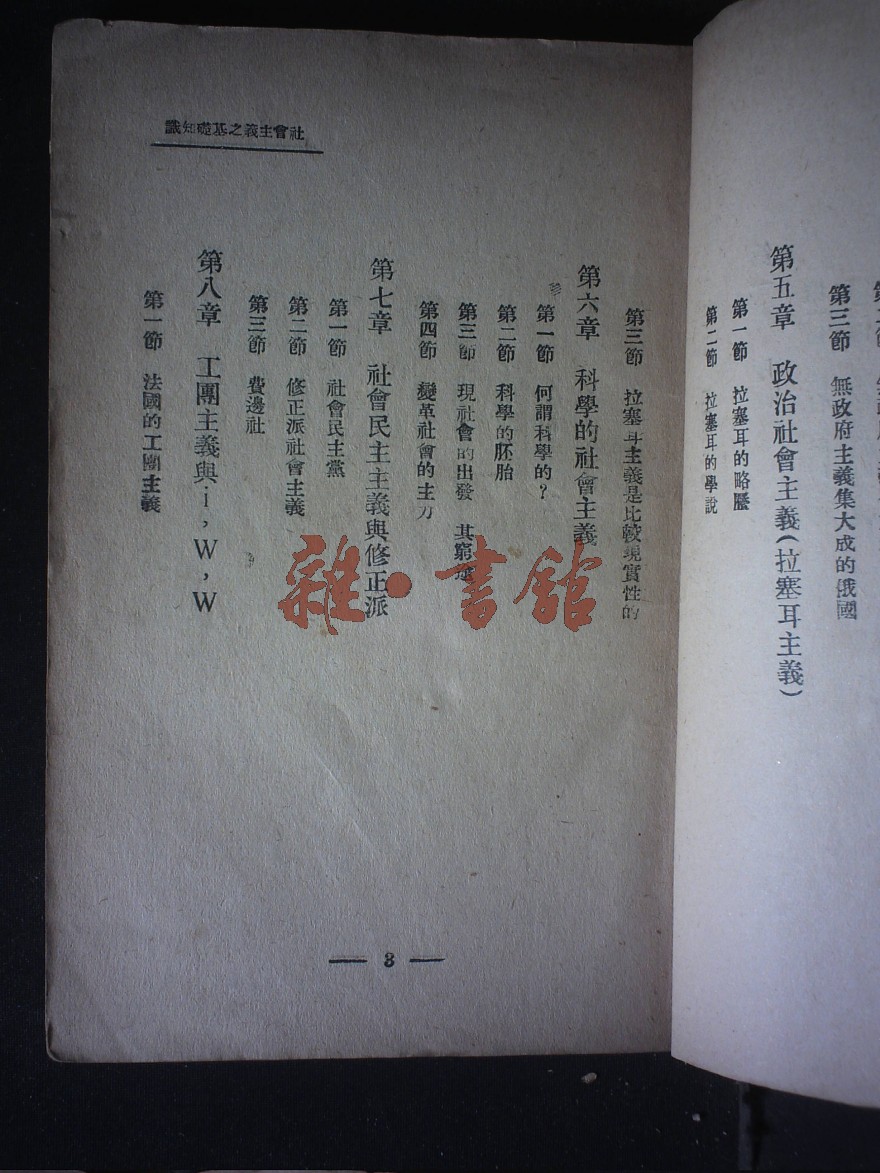 第三節 無政府主義集大成的俄國
第五章 政治社會主義(拉塞耳主義)
第一節 拉塞耳的略歷
第二節 拉塞耳的學說
社會主義之基礎知識
第三節 拉塞耳主義是比較現實性的
第六章 科學的社會主義
第一節 何謂科學的?
第二節 科學的胚胎
第三節 現社會的出發 其窮途
第四節 變革社會的主力
第七章 社會民主主義與修正派
第一節 社會民主黨
第二節 修正派社會主義
第三節 費邊社
第八章 工團主義與·i,W,W
第一節 法國的工團主義
— 3 —
雜·書館